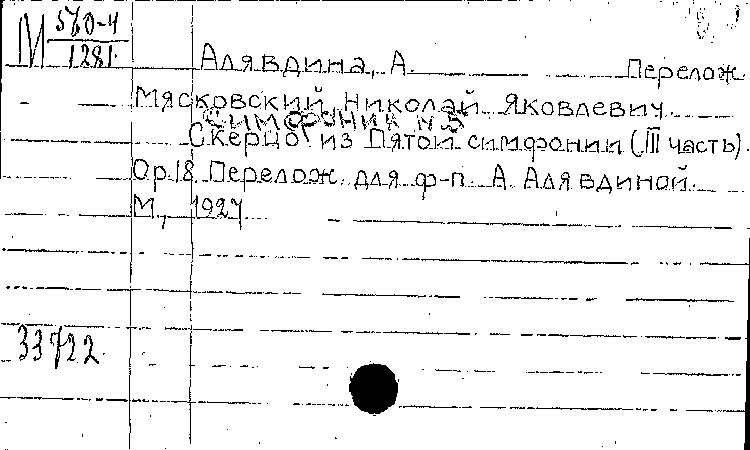 М 560-4
1281
Алявдина, А. Перелож.
Мясковский, Николай Яковлевич.
Симфония №5
Скерцо из Пятой симфонии (III часть).
Ор.18. Перелож. для ф-п. А. Алявдиной.
М., 1927
33722